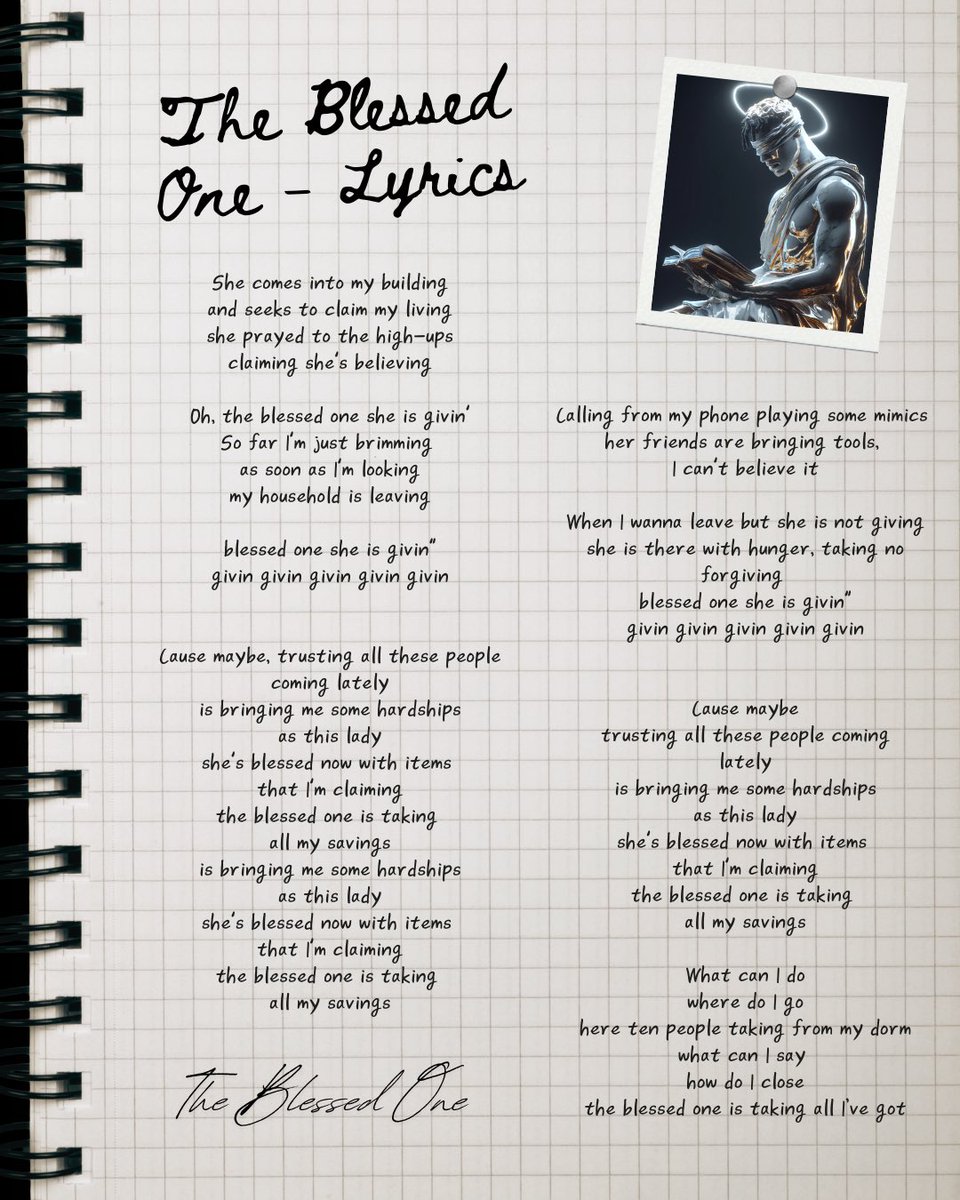 The Blessed
One - Lyrics
She comes into my building
and seeks to claim my living
she prayed to the high-ups
claiming she's believing
Oh, the blessed one she is givin'
So far I'm just brimming
as soon as I'm looking
my household is leaving
blessed one she is givin"
givin givin givin givin givin
Cause maybe, trusting all these people
coming lately
is bringing me some hardships
as this lady
she's blessed now with items
that I'm claiming
the blessed one is taking
all my savings
is bringing me some hardships
as this lady
she's blessed now with items
that I'm claiming
the blessed one is taking
all my savings
The Blessed One
Calling from my phone playing some mimics
her friends are bringing tools,
I can't believe it
When I wanna leave but she is not giving
she is there with hunger, taking no
forgiving
blessed one she is givin"
givin givin givin givin givin
Cause maybe
trusting all these people coming
lately
is bringing me some hardships
as this lady
she's blessed now with items
that I'm claiming
the blessed one is taking
all my savings
What can I do
where do I go
here ten people taking from my dorm
what can I say
how do I close
the blessed one is taking all I've got